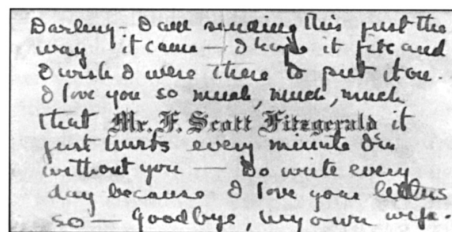 Darling - I am sending this just the
way it came — I hope it fits and
I wish I were there to put it on.
I love you so much, much, much
that Mr. F. Scott Fitzgerald it
just hurts every minute I'm
without you — Do write every
day because I love your letters
so — Goodbye, my own wife.